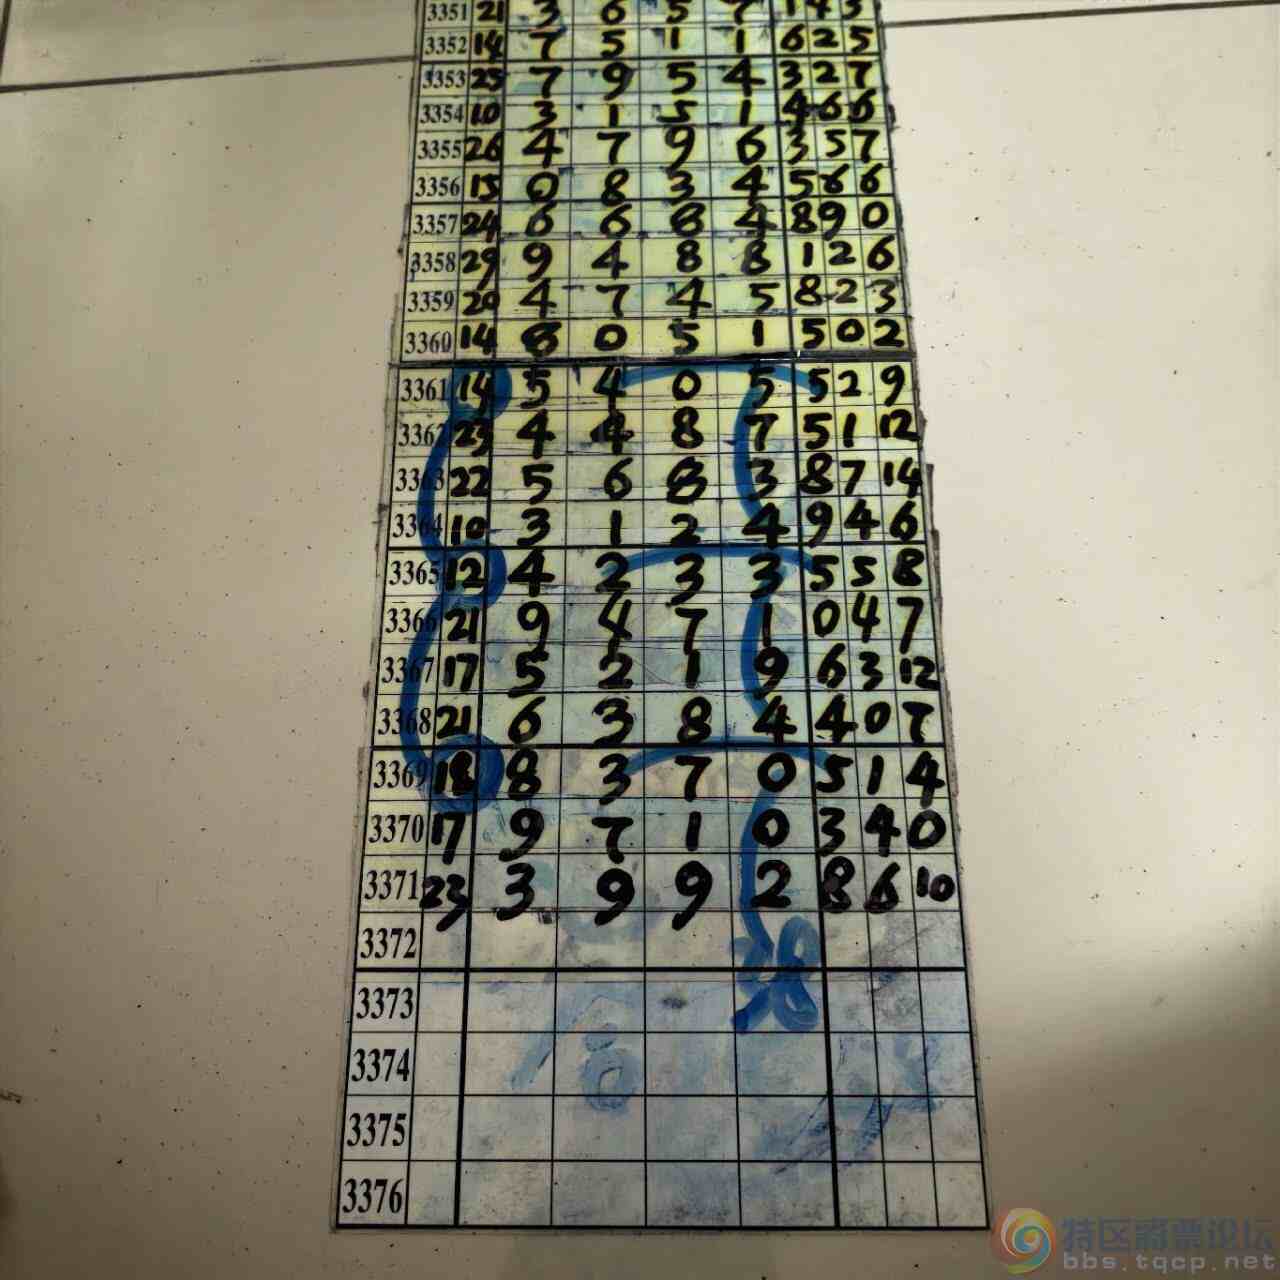 3351 21 3 6 5 7 1 4 3
3352 14 7 5 1 1 6 2 5
3353 25 7 9 5 4 3 2 7
3354 10 3 1 5 1 4 6 6
3355 26 4 7 9 6 3 5 7
3356 15 0 8 3 4 5 6 6
3357 24 6 6 8 4 8 9 0
3358 29 9 4 8 8 1 2 6
3359 20 4 7 4 5 8 2 3
3360 14 8 0 5 1 5 0 2
3361 14 5 4 0 5 5 2 9
3362 23 4 4 8 7 5 1 12
3363 22 5 6 8 3 8 7 14
3364 10 3 1 2 4 9 4 6
3365 12 4 2 3 3 5 5 8
3366 21 9 4 7 1 0 4 7
3367 17 5 2 1 9 6 3 12
3368 21 6 3 8 4 4 0 7
3369 18 8 3 7 0 5 1 4
3370 17 9 7 1 0 3 4 0
3371 23 3 9 9 2 8 6 10
3372
3373
3374
3375
3376
特区彩票论坛
bbs.tqcp.net